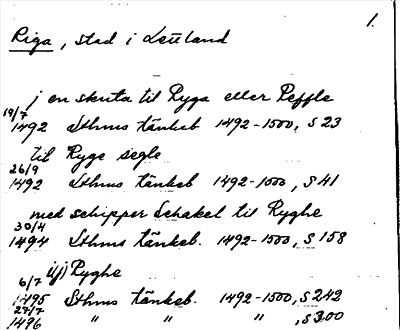 1.
Riga, stad i Lettland
j en skuta til Ryga eller Reffle
19/7
1492 Sthms tänkeb 1492-1500, S 23
til Ryge segle
26/9
1492 Sthms tänkeb 1492-1500, S 41
med schipper Schakel til Ryghe
30/4
1494 Sthms tänkeb. 1492-1500, S 158
i Ryghe
6/7
1495 Sthms tänkeb. 1492-1500, S 242
27/7
1496 " " " , S 300